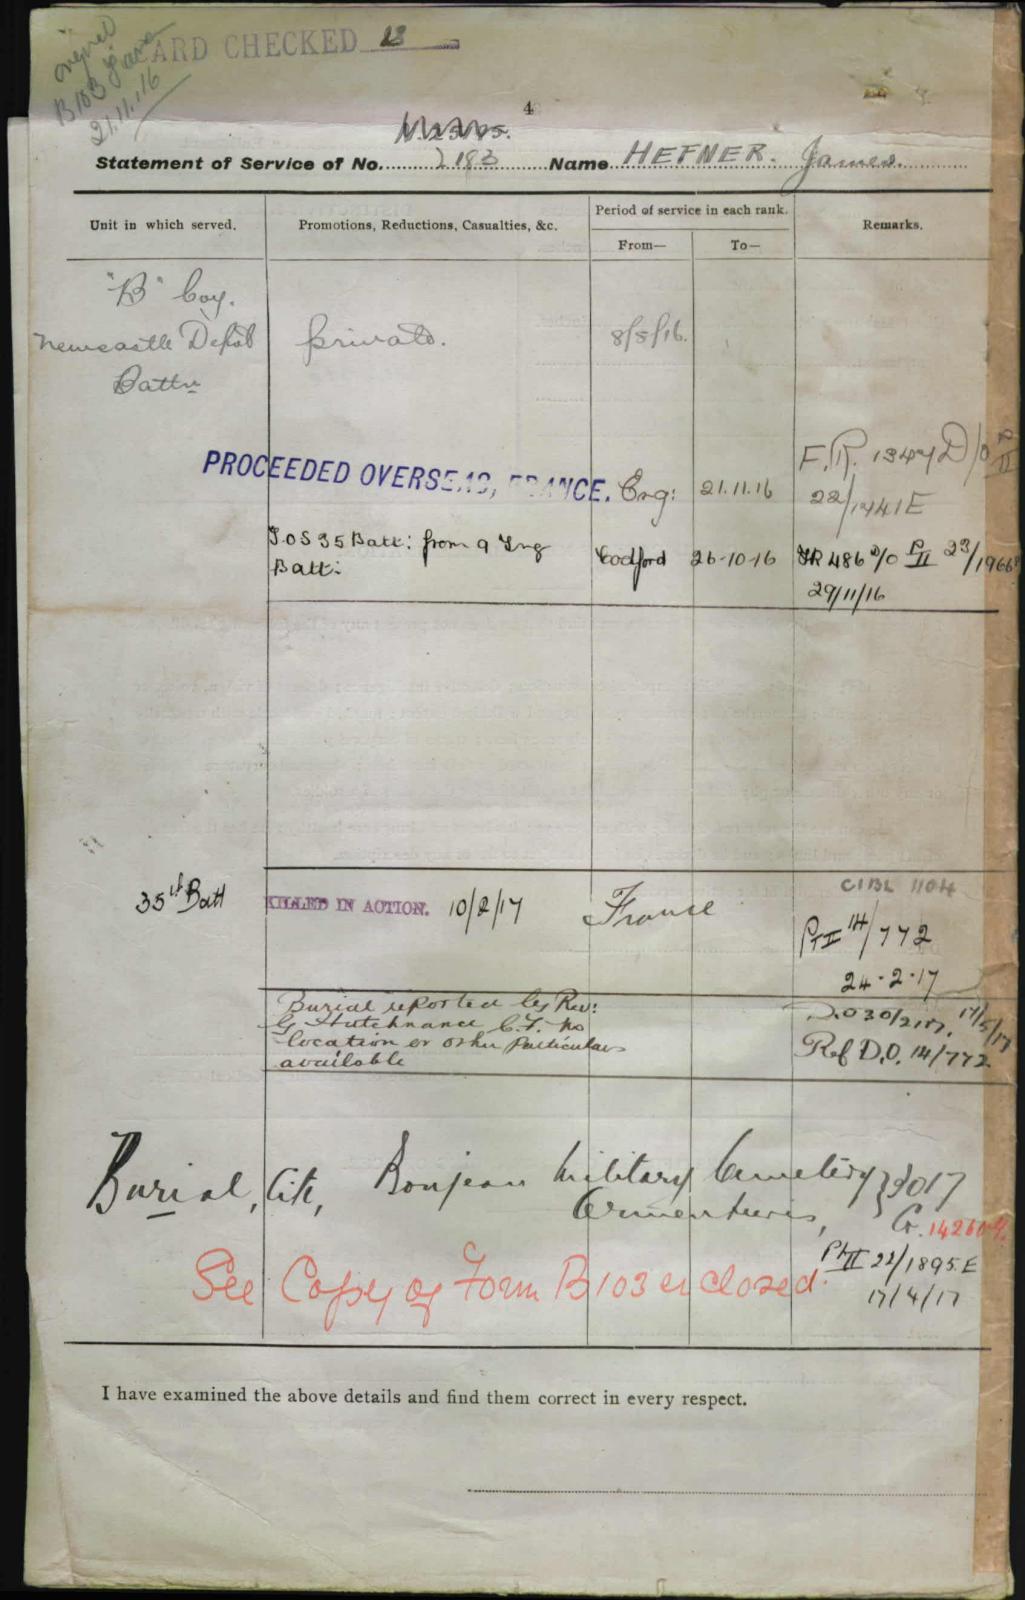 original
B103
21.11.16
CARD CHECKED
4
Statement of Service of No. 2183 Name HEFNER. James.
Unit in which served.
Promotions, Reductions, Casualties, &c.
Period of service in each rank.
From—
To—
Remarks.
"B" Coy.
Newcastle Depôt
Battn
private.
8/5/16.
PROCEEDED OVERSEAS, FRANCE. Eng: 21.11.16
F.R. 1347 D/O P II
22/1941E
T.O.S 35 Batt: from 9 Trng
Batt:
Codford
26-10-16
FR 486 D/O P II 23/1966
29/11/16
35th Batt
KILLED IN ACTION. 10/2/17
France
CIBL 1104
Pt II 14/772
24-2-17
Burial reported by Rev:
G C.F. no
location or other particulars
available
D.O 30/2117. 17/5/17
Ref D.O. 14/772
Burial, Cit, Bonjean Military Cemetery
Armentieres,
Pt II 22/1895.E
17/4/17
See Copy of Form B103 enclosed.
I have examined the above details and find them correct in every respect.